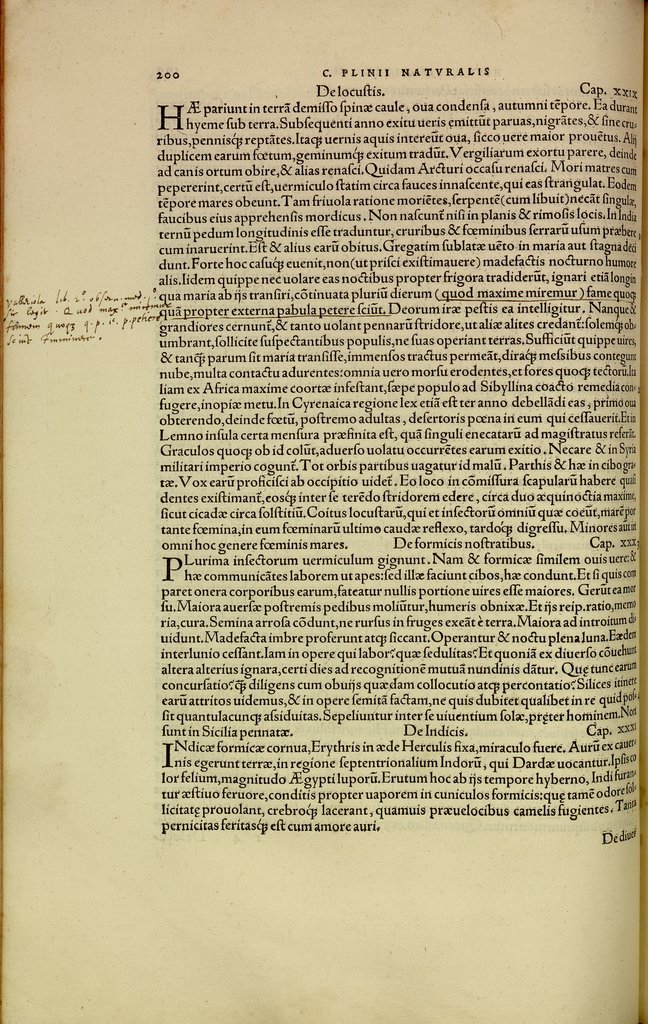 200
C. PLINII NATVRALIS
De locustis. Cap. xxix
HÆ pariunt in terrã demisso spinæ caule, oua condensa, autumni tẽpore. Ea durant
hyeme sub terra. Subsequenti anno exitu ueris emittũt paruas, nigrãtes, & sine cru-
ribus, pennisq́; reptãtes. Itaq; uernis aquis intereũt oua, sicco uere maior prouẽtus. Alij
duplicem earum fœtum, geminumq́; exitum tradũt. Vergiliarum exortu parere, deinde
ad canis ortum obire, & alias renasci. Quidam Arcturi occasu renasci. Mori matres cum
pepererint, certũ est, uermiculo statim circa fauces innascente, qui eas strangulat. Eodem
tẽpore mares obeunt. Tam friuola ratione moriẽtes, serpentẽ (cum libuit) necãt singulæ,
faucibus eius apprehensis mordicus. Non nascunt nisi in planis & rimosis locis. In India
ternũ pedum longitudinis esse traduntur, cruribus & fœminibus serrarũ usum præbere,
cum inaruerint. Est & alius earũ obitus. Gregatim sublatæ uẽto in maria aut stagna deci
dunt. Forte hoc casuq́; euenit, non (ut prisci existimauere) madefactis nocturno humore
alis. Iidem quippe nec uolare eas noctibus propter frigora tradiderũt, ignari etiã longin
qua maria ab ijs transiri, cõtinuata pluriũ dierum (quod maxime miremur) fame quoq;
quã propter externa pabula petere sciũt. Deorum iræ pestis ea intelligitur. Nanque &
grandiores cernunt, & tanto uolant pennarũ stridore, ut aliæ alites credant: solemq́; ob-
umbrant, sollicite suspectantibus populis, ne suas operiant terras. Sufficiũt quippe uires,
& tanq̃; parum sit maria transisse, immensos tractus permeãt, diraq́; messibus contegunt
nube, multa contactu adurentes: omnia uero morsu erodentes, et fores quoq; tectorũ. Ita
liam ex Africa maxime coortæ infestant, sæpe populo ad Sibyllina coacto remedia con-
fugere, inopiæ metu. In Cyrenaica regione lex etiã est ter anno debellãdi eas, primo oua
obterendo, deinde fœtũ, postremo adultas, desertoris pœna in eum qui cessauerit. Et in
Lemno insula certa mensura præfinita est, quã singuli enecatarũ ad magistratus referãt.
Graculos quoq; ob id colũt, aduerso uolatu occurrẽtes earum exitio. Necare & in Syria
militari imperio cogunt. Tot orbis partibus uagatur id malũ. Parthis & hæ in cibo gra-
tæ. Vox earũ proficisci ab occipitio uidet. Eo loco in cõmissura scapularũ habere quasi
dentes existimant, eosq́; inter se terẽdo stridorem edere, circa duo æquinoctia maxime,
sicut cicadæ circa solstitiũ. Coitus locustarũ, qui et insectorũ omniũ quæ coeũt, marẽ por
tante fœmina, in eum fœminarũ ultimo caudæ reflexo, tardoq́; digressu. Minores aut in
omni hoc genere fœminis mares. De formicis nostratibus. Cap. xxx
PLurima insectorum uermiculum gignunt. Nam & formicæ similem ouis uere: &
hæ communicãtes laborem ut apes: sed illæ faciunt cibos, hæ condunt. Et si quis com
paret onera corporibus earum, fateatur nullis portione uires esse maiores. Gerũt ea mor
su. Maiora auersæ postremis pedibus moliũtur, humeris obnixæ. Et ijs reip. ratio, memo
ria, cura. Semina arrosa cõdunt, ne rursus in fruges exeãt è terra. Maiora ad introitum di
uidunt. Madefacta imbre proferunt atq; siccant. Operantur & noctu plena luna. Eædem
interlunio cessant. Iam in opere qui labor? quæ sedulitas? Et quoniã ex diuerso cõuehunt
altera alterius ignara, certi dies ad recognitionẽ mutuã nundinis dãtur. Quę tunc earum
concursatio? q̃; diligens cum obuijs quædam collocutio atq; percontatio? Silices itinere
earũ attritos uidemus, & in opere semitã factam, ne quis dubitet qualibet in re quid pos
sit quantulacunq; assiduitas. Sepeliuntur inter se uiuentium solæ, pręter hominem. Non
sunt in Sicilia pennatæ. De Indicis. Cap. xxxi
INdicæ formicæ cornua, Erythris in æde Herculis fixa, miraculo fuere. Aurũ ex cauer-
nis egerunt terræ, in regione septentrionalium Indorũ, qui Dardæ uocantur. Ipsis co
lor felium, magnitudo Ægypti luporũ. Erutum hoc ab ijs tempore hyberno, Indi furan-
tur æstiuo feruore, conditis propter uaporem in cuniculos formicis: quę tamẽ odore sol-
licitatę prouolant, crebroq́; lacerant, quamuis præuelocibus camelis fugientes. Tanta
pernicitas feritasq́; est cum amore auri.
De diuer